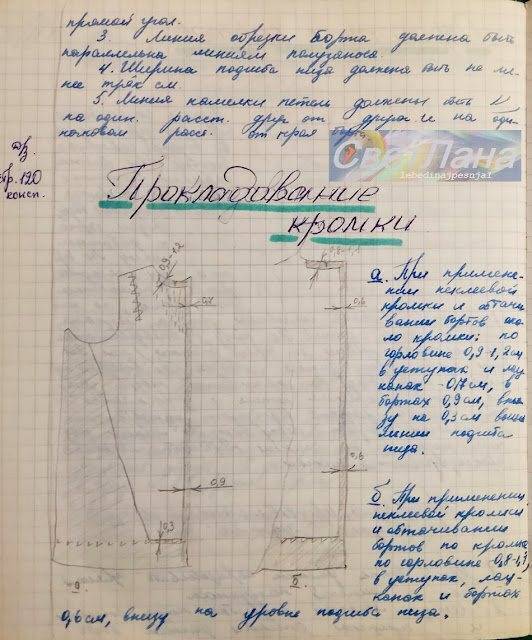 прямой угол.
3. Линия обрезки борта должна быть
параллельна линиям полузаноса.
4. Ширина подгиба низа должена быть не ме-
нее трёх см.
5. Линия намелки петель должены быть
на один. расст. друг от друга и на оди-
наковом расст. от края борта
Д/з.
стр. 120
консп.
СветЛана
lebedinajpesnja1
Прокладование
кромки
0,9-1,2
0,7
0,9
0,3
а
0,8-1,1
0,6
0,6
б
а. При примене-
нии неклеевой
кромки и обтачи
вании бортов око
ло кромки: по
горловине 0,9-1,2см
в уступах и лац
канах -0,7см, в
бортах 0,9см, вни
зу на 0,3см выше
линии подгиба
низа.
б. При применении
неклеевой кромки
и обтачивании
бортов по кромке
по горловине -0,8-1,1
в уступах, лац-
канах и бортах
0,6см, внизу на уровне подгиба низа.